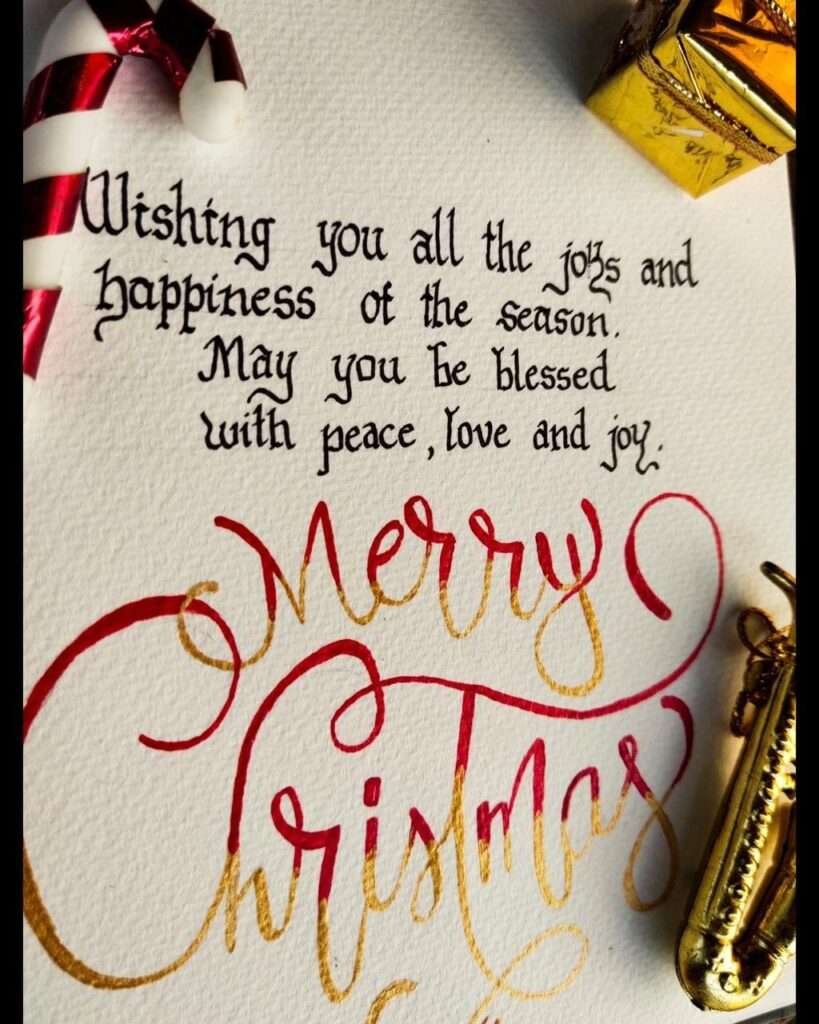 Wishing you all the joys and
happiness of the season.
May you be blessed
with peace, love and joy.
Merry
Christmas